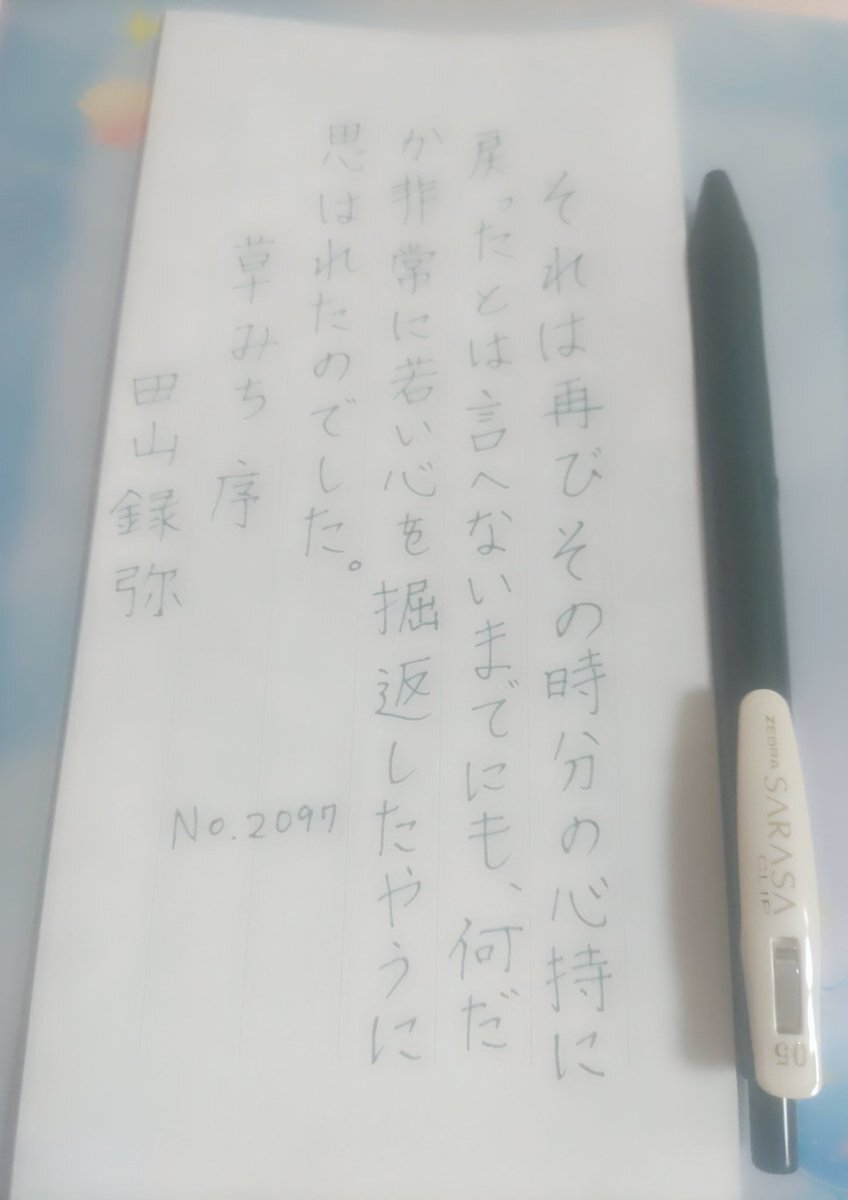 それは再びその時分の心持に
戻ったとは言へないまでにも、何だ
か非常に若い心を掘返したやうに
思はれたのでした。
草みち 序
田山録弥
No.2097
ZEBRA SARASA CLIP
05